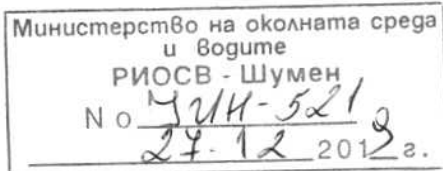 Министерство на околната среда
и водите
РИОСВ - Шумен
No УИН-521
27.12 2019 г.